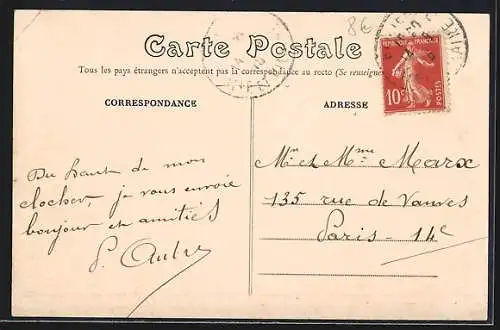 8€
Carte Postale
Tous les pays étrangers n'acceptent pas la correspondance au recto (Se renseigner
CORRESPONDANCE
ADRESSE
REPUBLIQUE FRANÇAISE
10c
POSTES
Du haut de mon
clocher, je vous envoie
bonjour et amitiés
Mr et Mme Marx
135 rue de Vanves
Paris - 14e